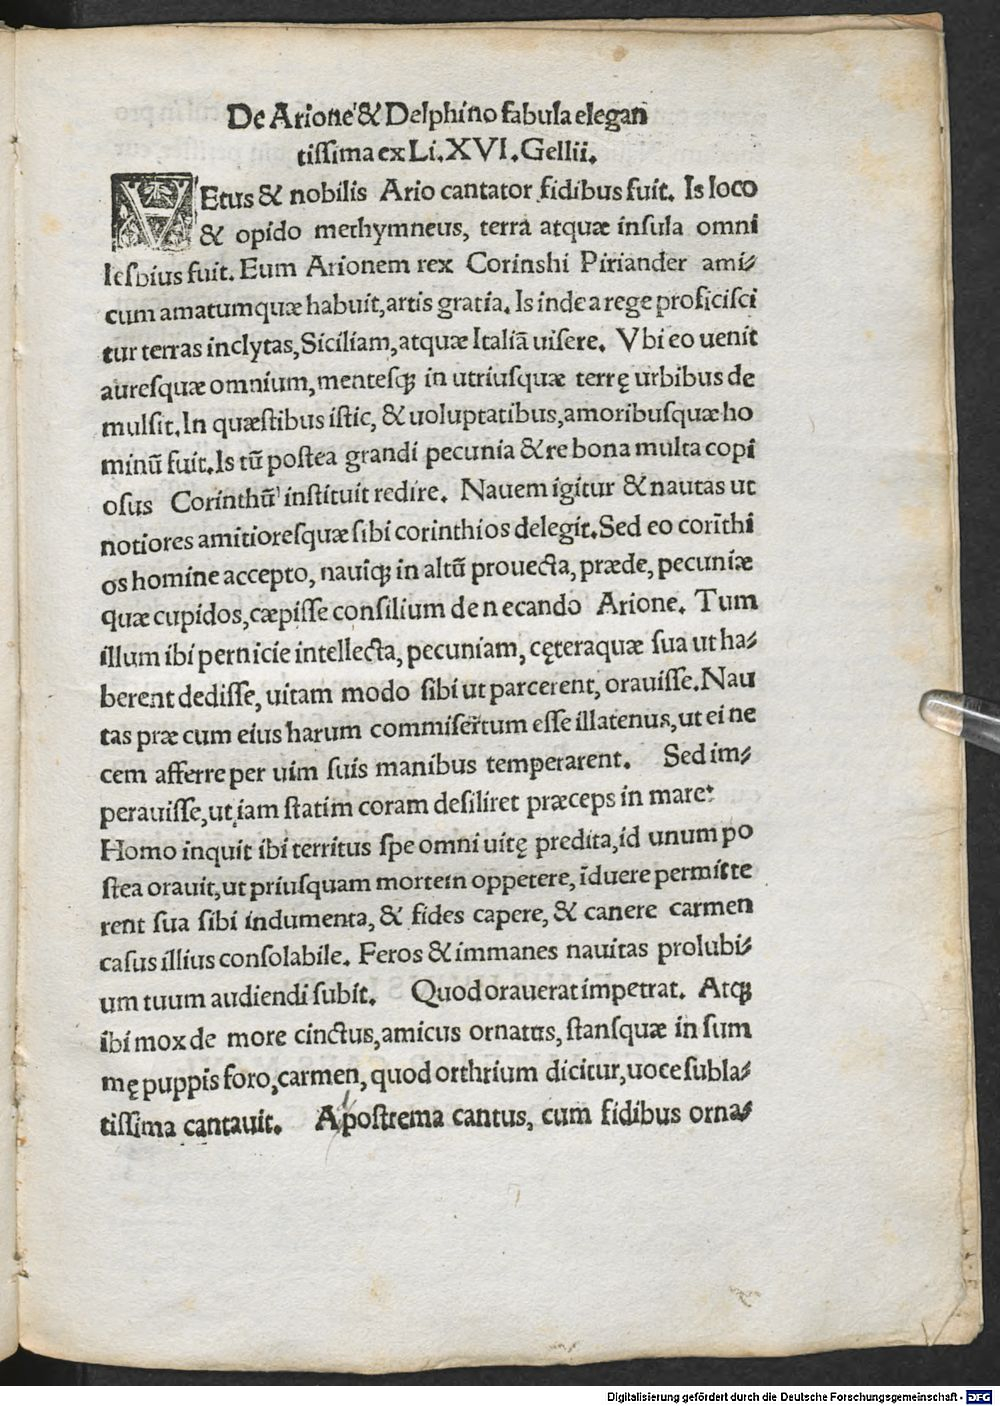 De Arione & Delphino fabula elegan
tissima ex Li. XVI. Gellii.
VEtus & nobilis Ario cantator fidibus fuit. Is loco
& opido methymneus, terra atquæ insula omni
lesbius fuit. Eum Arionem rex Corinshi Piriander ami⸗
cum amatumquæ habuit, artis gratia. Is inde a rege proficisci
tur terras inclytas, Siciliam, atquæ Italiā uisere. Vbi eo uenit
auresquæ omnium, mentesqꝫ in utriusquæ terrę urbibus de
mulsit. In quæstibus istic, & uoluptatibus, amoribusquæ ho
minū fuit. Is tū postea grandi pecunia & re bona multa copi
osus Corinthū instituit redire. Nauem igitur & nautas ut
notiores amitioresquæ sibi corinthios delegit. Sed eo corīthi
os homine accepto, nauiqꝫ in altū prouecta, præde, pecuniæ
quæ cupidos, cæpisse consilium de necando Arione. Tum
illum ibi pernicie intellecta, pecuniam, cęteraquæ sua ut ha⸗
berent dedisse, uitam modo sibi ut parcerent, orauisse. Nau
tas præ cum eius harum commiser̄tum esse illatenus, ut ei ne
cem afferre per uim suis manibus temperarent. Sed im⸗
perauisse, ut iam statim coram desiliret præceps in mare:
Homo inquit ibi territus spe omni uitę predita, id unum po
stea orauit, ut priusquam mortem oppetere, īduere permitte
rent sua sibi indumenta, & fides capere, & canere carmen
casus illius consolabile. Feros & immanes nauitas prolubi⸗
um tuum audiendi subit. Quod orauerat impetrat. Atqꝫ
ibi mox de more cinctus, amicus ornatus, stansquæ in sum
mę puppis foro, carmen, quod orthrium dicitur, uoce subla⸗
tissima cantauit. A postrema cantus, cum fidibus orna⸗
Digitalisierung gefördert durch die Deutsche Forschungsgemeinschaft - DFG